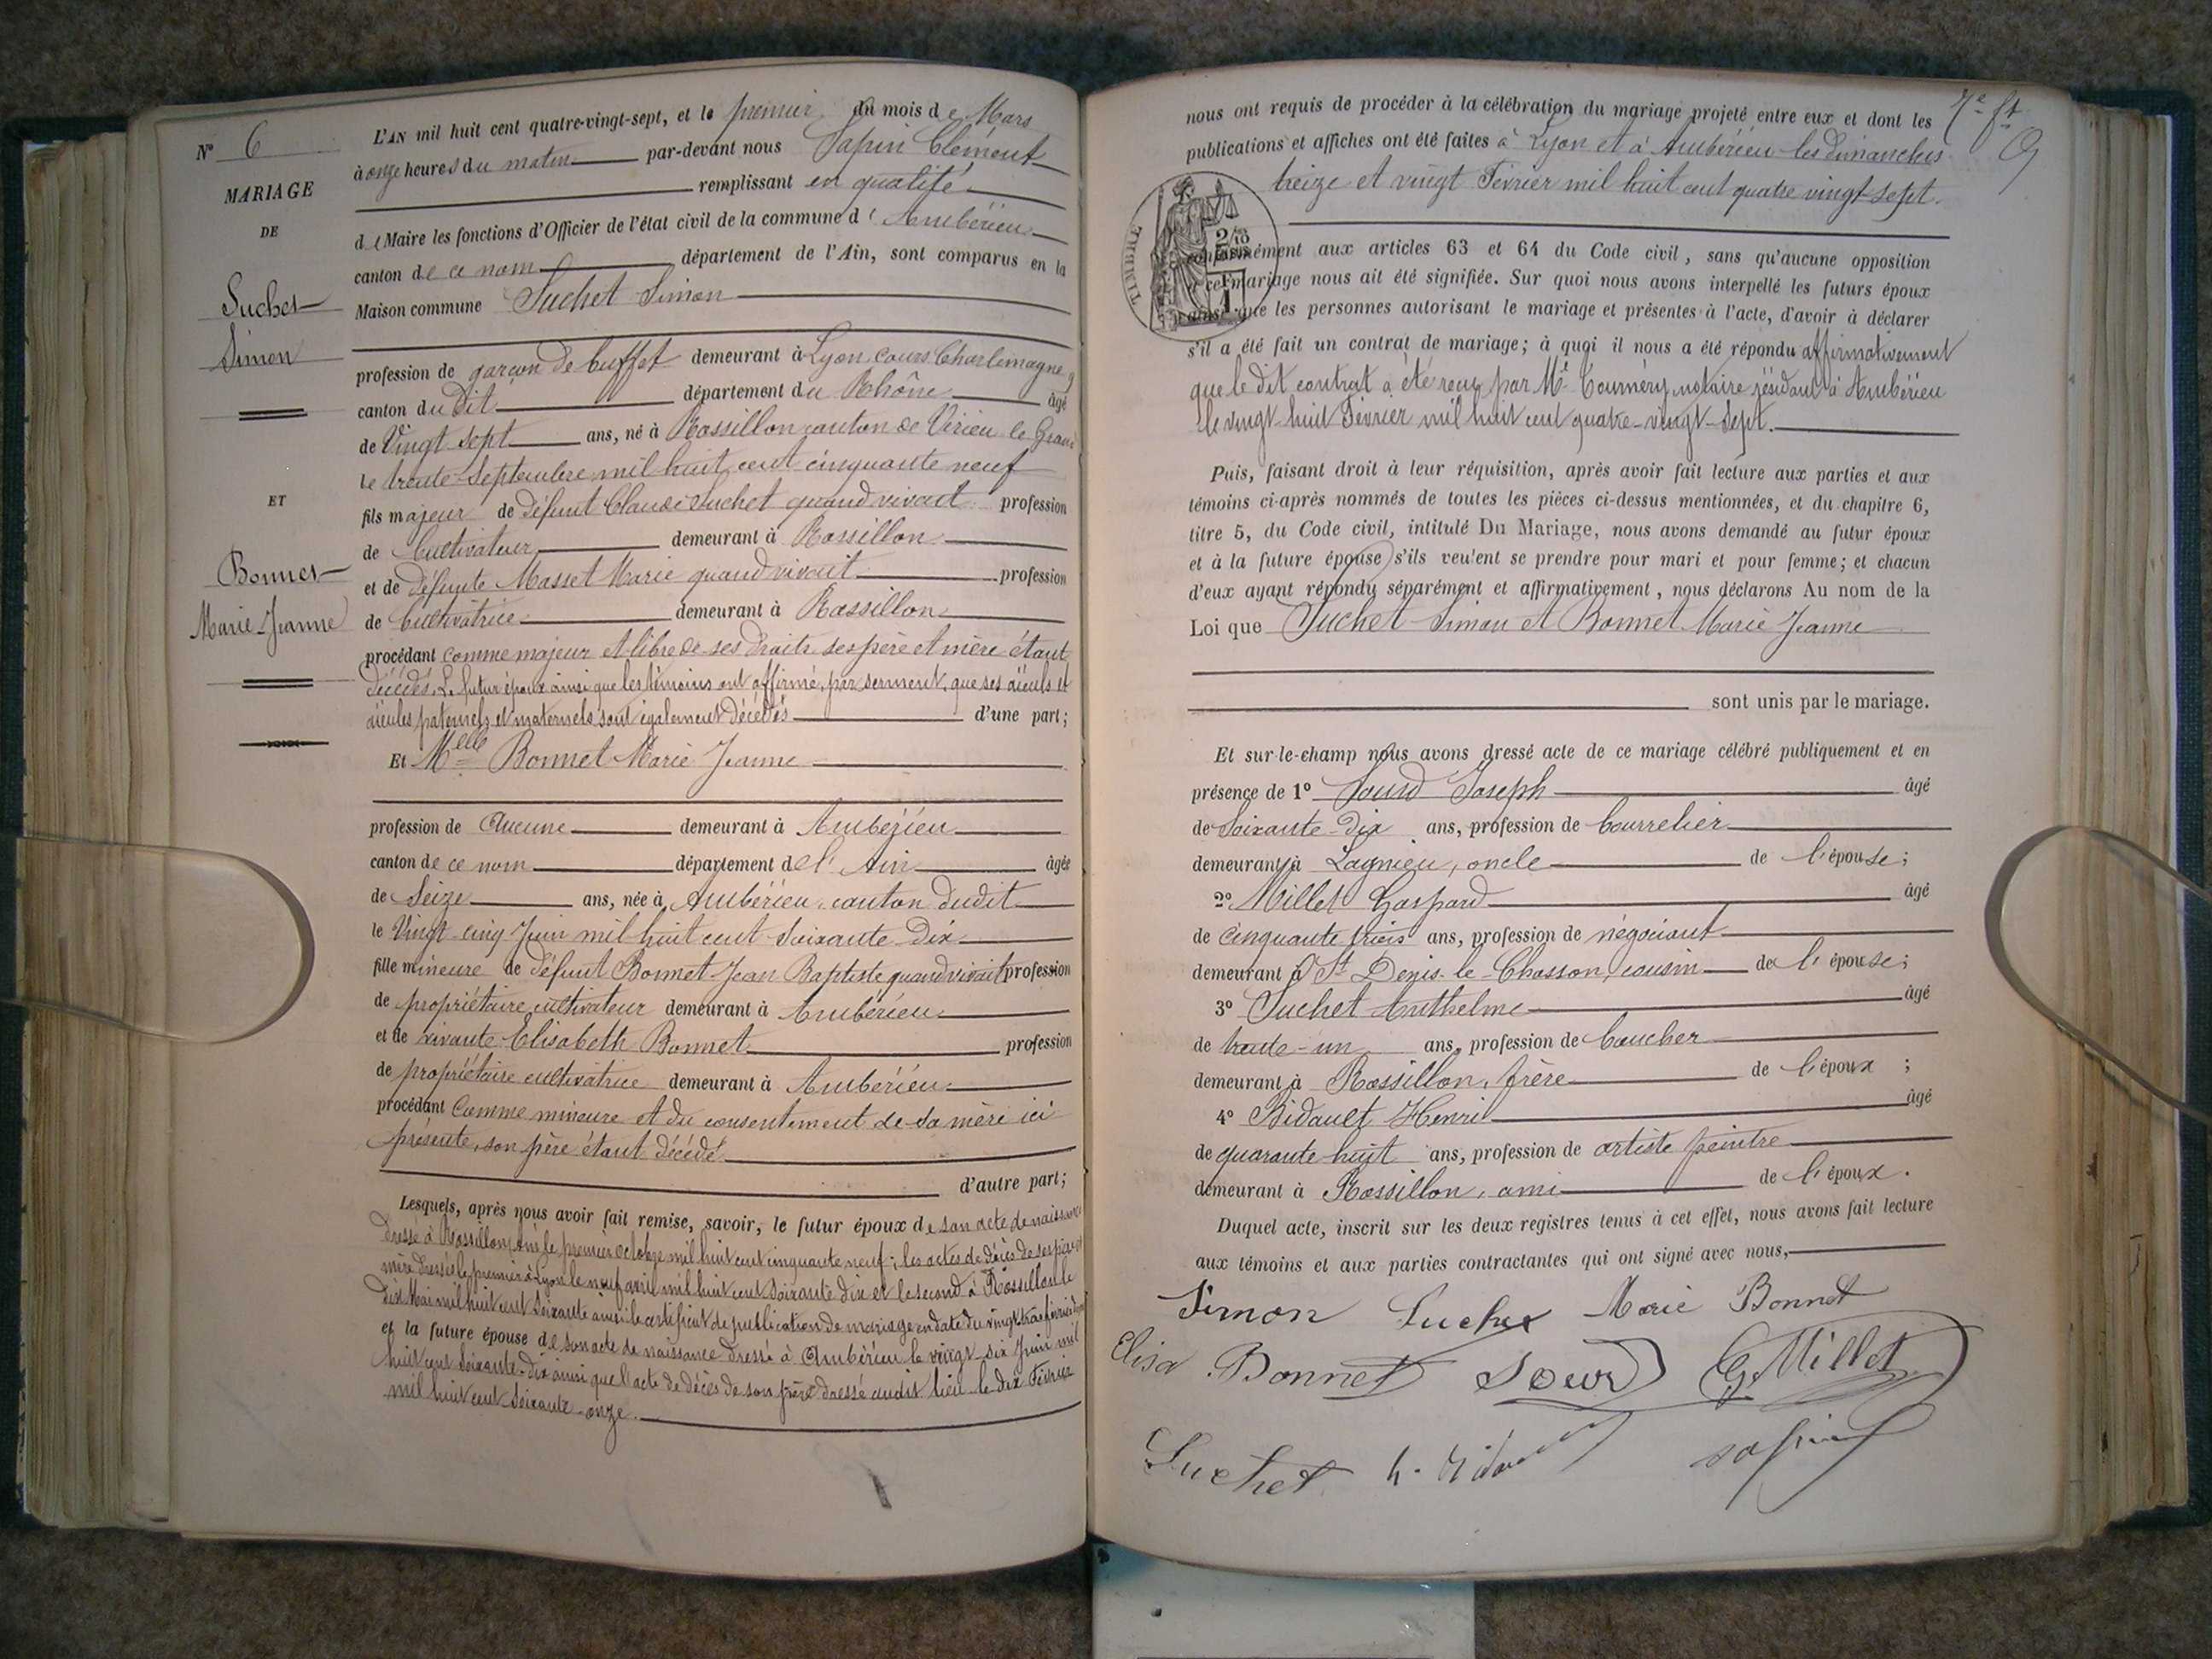 N° 6
MARIAGE
DE
Suchet
Simon
ET
Bonnet
Marie-Jeanne
L'AN mil huit cent quatre-vingt-sept, et le premier du mois de Mars
à onze heures du matin par-devant nous Sapin Clément
remplissant en qualité
de Maire les fonctions d'Officier de l'état civil de la commune d'Ambérieu
canton de ce nom département de l'Ain, sont comparus en la
Maison commune Suchet Simon
profession de garçon de buffet demeurant à Lyon, cours Charlemagne
canton dudit département du Rhône âgé
de Vingt-sept ans, né à Rossillon canton de Virieu-le-Grand
le trente Septembre mil huit cent cinquante neuf
fils majeur de défunt Claude Suchet quand vivait profession
de Cultivateur demeurant à Rossillon
et de défunte Masset Marie quand vivait profession
de Cultivatrice demeurant à Rossillon
procédant comme majeur et libre de ses droits ses père et mère étant
décédés. Le futur époux ainsi que les témoins ont affirmé, par serment, que ses aïeuls et
aïeules paternels et maternels sont également décédés d'une part;
Et Melle Bonnet Marie Jeanne
profession de Aucune demeurant à Ambérieu
canton de ce nom département de l'Ain âgée
de Seize ans, née à Ambérieu, canton dudit
le Vingt-cinq Juin mil huit cent soixante-dix
fille mineure de défunt Bonnet Jean Baptiste quand vivait profession
de propriétaire cultivateur demeurant à Ambérieu
et de vivante Elisabeth Bonnet profession
de propriétaire cultivatrice demeurant à Ambérieu
procédant comme mineure et du consentement de sa mère ici
présente, son père étant décédé
d'autre part;
Lesquels, après nous avoir fait remise, savoir, le futur époux de son acte de naissance
dressé à Rossillon, Ain le premier octobre mil huit cent cinquante neuf; les actes de décès de ses père et
mère dressés le premier à Lyon le neuf avril mil huit cent soixante dix et le second à Rossillon le
dix Mai mil huit cent soixante ainsi le certificat de publication de mariage en date du vingt trois février
et la future épouse de son acte de naissance dressé à Ambérieu le vingt-six Juin mil
huit cent soixante-dix ainsi que l'acte de décès de son père dressé audit lieu le dix Février
mil huit cent soixante-onze.
nous ont requis de procéder à la célébration du mariage projeté entre eux et dont les
publications et affiches ont été faites à Lyon et à Ambérieu les dimanches
treize et vingt Février mil huit cent quatre vingt-sept.
TIMBRE
conformément aux articles 63 et 64 du Code civil, sans qu'aucune opposition
à ce mariage nous ait été signifiée. Sur quoi nous avons interpellé les futurs époux
ainsi que les personnes autorisant le mariage et présentes à l'acte, d'avoir à déclarer
s'il a été fait un contrat de mariage; à quoi il nous a été répondu affirmativement
que le dit contrat a été reçu par Me Tournéry, notaire résidant à Ambérieu
le vingt-huit Février mil huit cent quatre-vingt-sept.
Puis, faisant droit à leur réquisition, après avoir fait lecture aux parties et aux
témoins ci-après nommés de toutes les pièces ci-dessus mentionnées, et du chapitre 6,
titre 5, du Code civil, intitulé Du Mariage, nous avons demandé au futur époux
et à la future épouse s'ils veulent se prendre pour mari et pour femme; et chacun
d'eux ayant répondu séparément et affirmativement, nous déclarons Au nom de la
Loi que Suchet Simon et Bonnet Marie Jeanne
sont unis par le mariage.
Et sur-le-champ nous avons dressé acte de ce mariage célébré publiquement et en
présence de 1° Sourd Joseph âgé
de soixante-dix ans, profession de bourrelier
demeurant à Lagnieu, oncle de l'épouse;
2° Millet Gaspard âgé
de cinquante trois ans, profession de négociant
demeurant à St Denis-le-Chosson, cousin de l'épouse;
3° Suchet Anthelme âgé
de trente-un ans, profession de boucher
demeurant à Rossillon, frère de l'époux;
4° Bidault Henri âgé
de quarante huit ans, profession de artiste peintre
demeurant à Rossillon, ami de l'époux.
Duquel acte, inscrit sur les deux registres tenus à cet effet, nous avons fait lecture
aux témoins et aux parties contractantes qui ont signé avec nous,
Simon Suchet Marie Bonnet
Elisa Bonnet Sourd G. Millet
Suchet Sapin